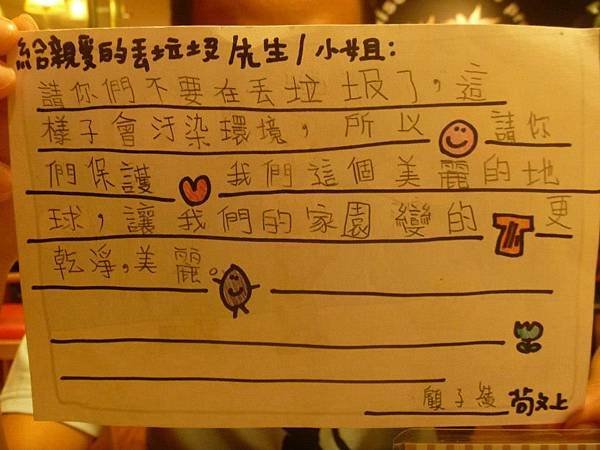 給親愛的丟垃圾/先生/小姐:
請你們不要在丟垃圾了,這
樣子會汙染環境,所以請你
們保護我們這個美麗的地
球,讓我們的家園變的更
乾淨,美麗。
顧子綾 筒文上